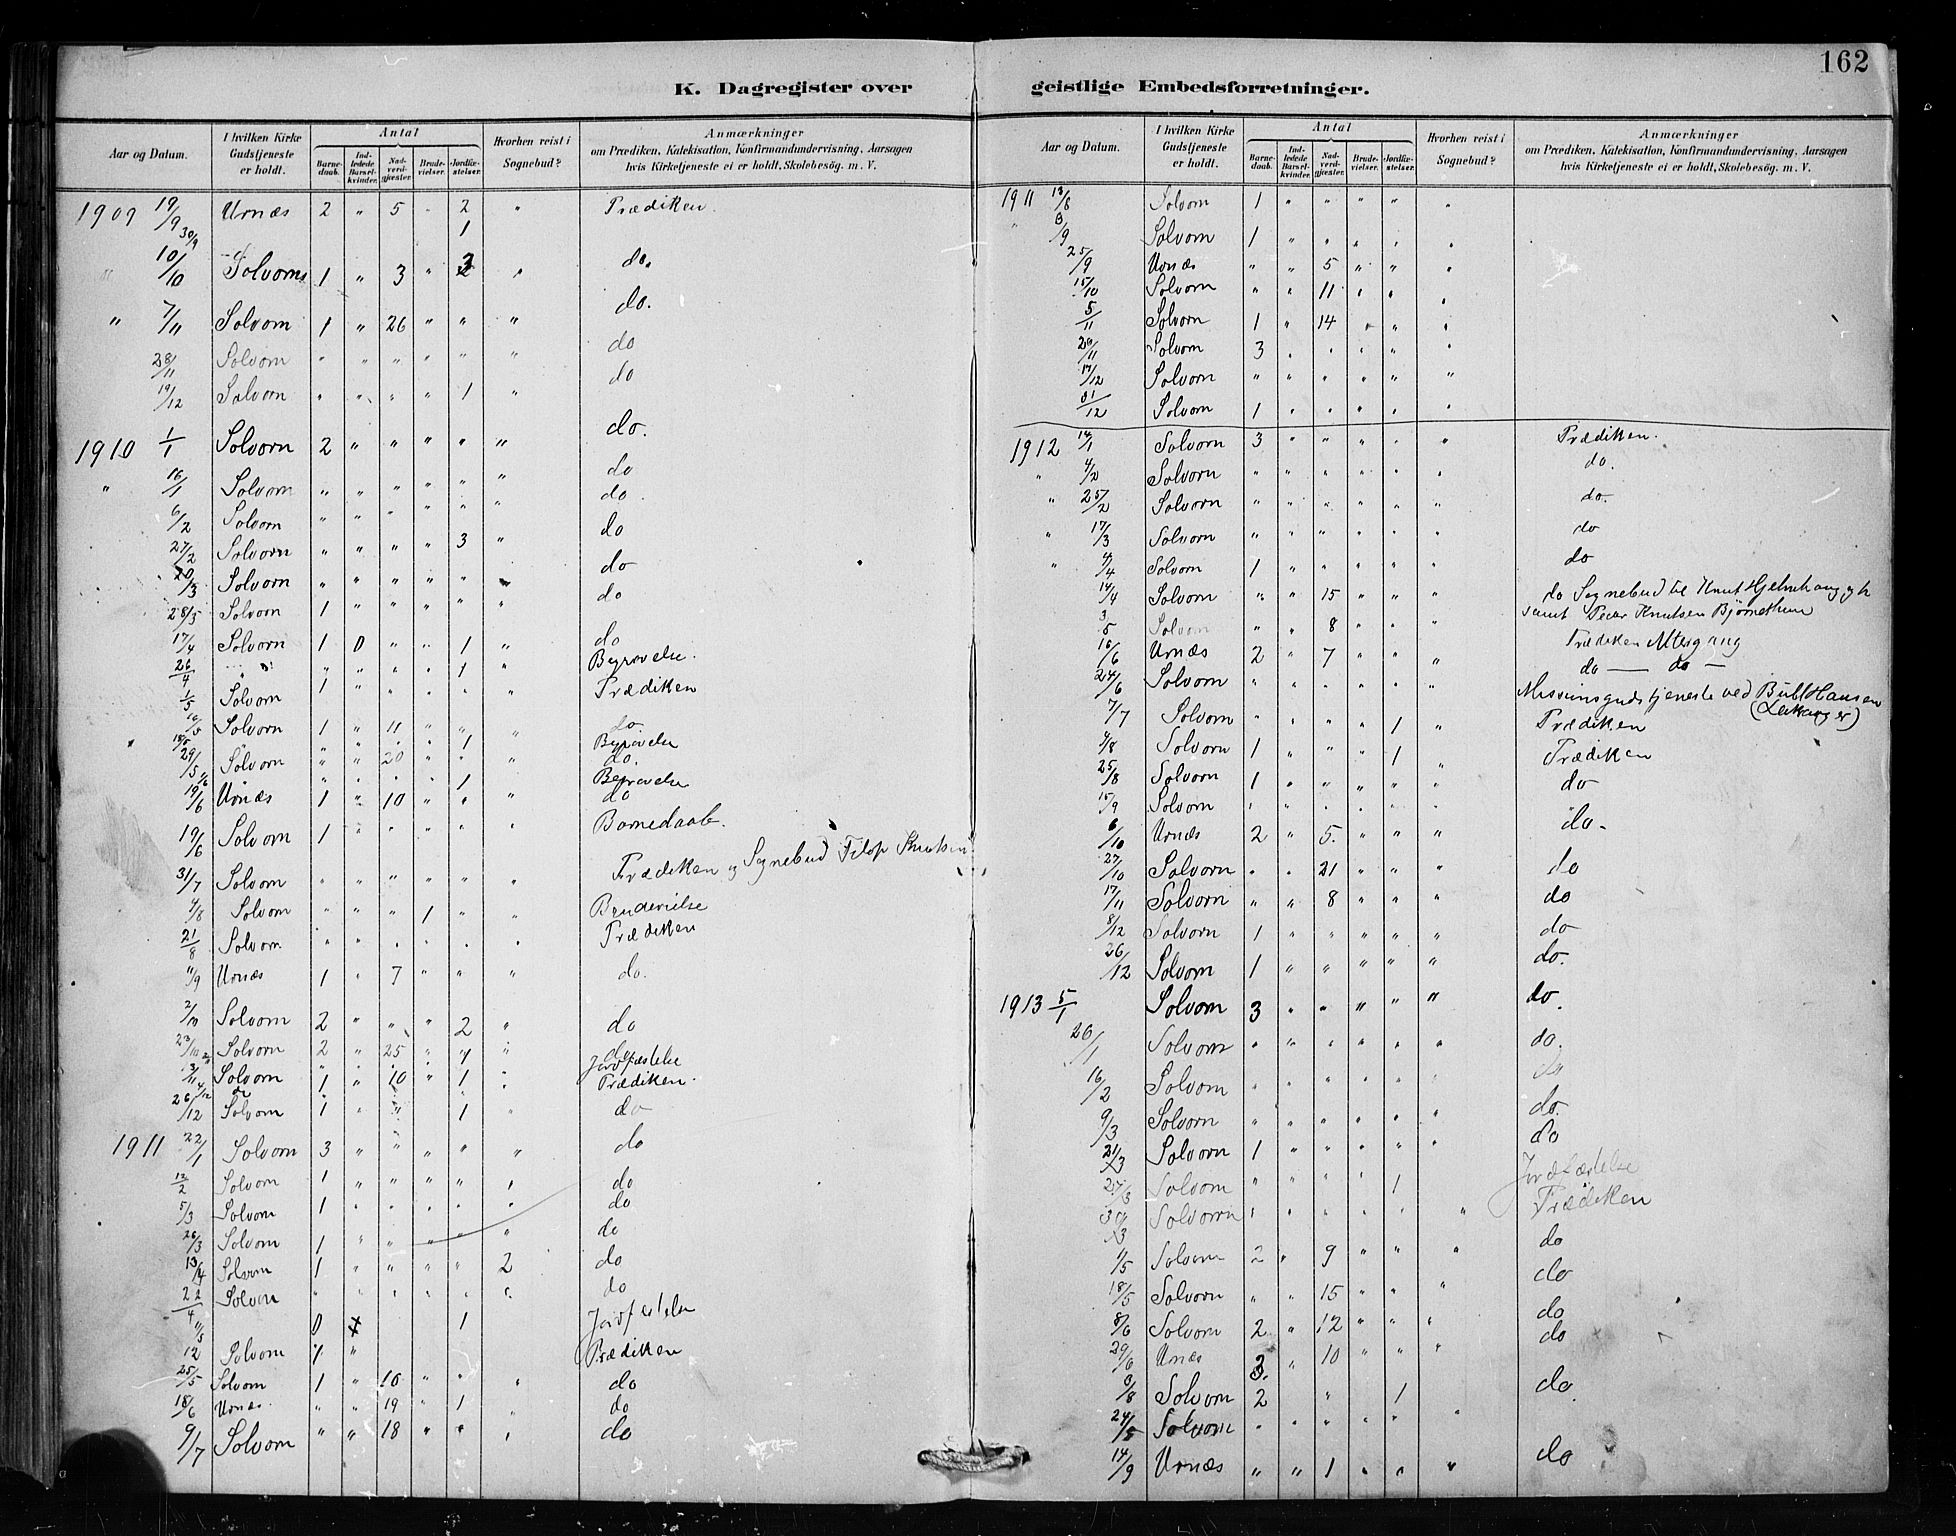 162
K. Dagregister over geistlige Embedsforretninger.
Aar og Datum. | I hvilken Kirke Gudstjeneste er holdt. | Antal | Barne-daab. | Ind-ledede Barsel-kvinder. | Nad-verd-gjæster. | Brude-vielser. | Jordfæ-stelser. | Hvorhen reist i Sognebud? | Anmærkninger om Prædiken, Katekisation, Konfirmandundervisning, Aarsagen hvis Kirketjeneste ei er holdt, Skolebesög. m. V.
1909 19/9 Urnæs 2 " 5 " 2 " Prædiken.
30/9 1
" 10/10 Solvorn 1 " 3 " 3 " do.
" 7/11 Solvorn 1 " 26 " " " do.
28/11 Solvorn " " " " " " do
19/12 Solvorn " " " " 1 " do
1910 1/1 Solvorn 2 " " " " " do.
" 16/1 Solvorn " " " " " " do
6/2 Solvorn " " " " " " do.
27/2 Solvorn " " " " 3 " do
20/3 Solvorn " " " " " " do
28/3 Solvorn 1 " " " " " do
17/4 Solvorn 1 0 " " 1 " do
26/4 " " " " " 1 " Begravelse.
1/5 Solvorn 1 " " " " " Prædiken
16/5 Solvorn 1 " 11 " " " do.
18/5 " " " " 1 Begravelse
29/5 Solvorn " " 20 " " " do.
" " " " 1 Begravelse
19/6 Urnæs 1 " 10 " " " do
19/6 Solvorn 1 " " " " " Barnedaab.
31/7 Solvorn " " " " " " Prædiken og Sognebud Filop Knutsen
4/8 Solvorn " " " 1 " " Brudevielse
21/8 Solvorn " " " " " " Prædiken
11/9 Urnæs 1 " 7 " " " do.
2/10 Solvorn 2 " " " 2 " do
23/10 Solvorn 2 " 25 " " " do
Jordfæstelse
13/11 Solvorn 1 " 10 " 1 " Prædiken.
4/12 do
26/12 Solvorn 1 " " " 1 " do
1911 22/1 Solvorn 3 " " " " " do
12/2 Solvorn 1 " " " " " do
5/3 Solvorn 1 " " " " " do
26/3 Solvorn 1 " " " " " do
13/4 Solvorn 1 " " " " 2 do
22/4 Solvorn " " " " " " do
11/5 0 1 Jordfestelse
12 Solvorn 1 " Prædiken
25/5 Solvorn 1 " 10 " " " do
18/6 Urnæs. " " 19 " 1 " do
9/7 Solvorn " " 18 " " " do
Aar og Datum. | I hvilken Kirke Gudstjeneste er holdt. | Antal | Barne-daab. | Ind-ledede Barsel-kvinder. | Nad-verd-gjæster. | Brude-vielser. | Jordfæ-stelser. | Hvorhen reist i Sognebud? | Anmærkninger om Prædiken, Katekisation, Konfirmandundervisning, Aarsagen hvis Kirketjeneste ei er holdt, Skolebesög. m. V.
1911 13/8 Solvorn 1 " " " " "
" 3/9 Solvorn 1 " " " " "
25/9 Urnæs " " 5 " " "
15/10 Solvorn " " 11 " " "
5/11 Solvorn 1 " 14 " " "
26/11 Solvorn 3 " " " " "
17/12 Solvorn " " " " " "
31/12 Solvorn 1 " " " " "
1912 14/1 Solvorn 3 " " " " " Prædiken.
" 4/2 Solvorn " " " " " " do.
" 25/2 Solvorn " " " " " " do.
" 17/3 Solvorn " " " " " " do
" 4/4 Solvorn 1 " " " " " do
14/4 Solvorn " " 15 " " " do Sognebud til Knut Hjelmhaug
samt Peder Knutsen Bjørnethun
3/5 Solvorn " " 8 " " " Prædiken Altergang
16/6 Urnæs 2 " 7 " " " do — do —
24/6 Solvorn " " " " " " Missionsgudstjeneste ved Buhl Hansen
(Leikanger)
7/7 Solvorn " " " " 1 " Prædiken
4/8 Solvorn 1 " " " 1 " Prædiken
25/8 Solvorn 1 " " " " " do
15/9 Solvorn " " " " " " "
6/10 Urnæs 2 " 5. " " " do.
27/10 Solvorn " " 21 " " " do
17/11 Solvorn " " 8 " " " do
8/12 Solvorn 1 " " " " " do
26/12 Solvorn 1 " " " " " do.
1913 5/1 Solvorn 3 " " " " " do.
26/1 Solvorn " " " " " " do.
16/2 Solvorn " " " " " " do
9/3 Solvorn " " " " " " do.
21/3 Solvorn 1 " " " " " do
27/3 Solvorn " " " " 1 Jordfæstelse
30/3 Solvorn " " " " " " Prædiken
1/5 Solvorn 2 " 9 " " " do
18/5 Solvorn " " 15 " " " do
8/6 Solvorn 2 " 12 " " " do
29/6 Urnæs 3. " 10 " " " do
3/8 Solvorn 2 " 1 do
24/5 Solvorn " " " " " "
14/9 Urnæs " " 1 " " " do